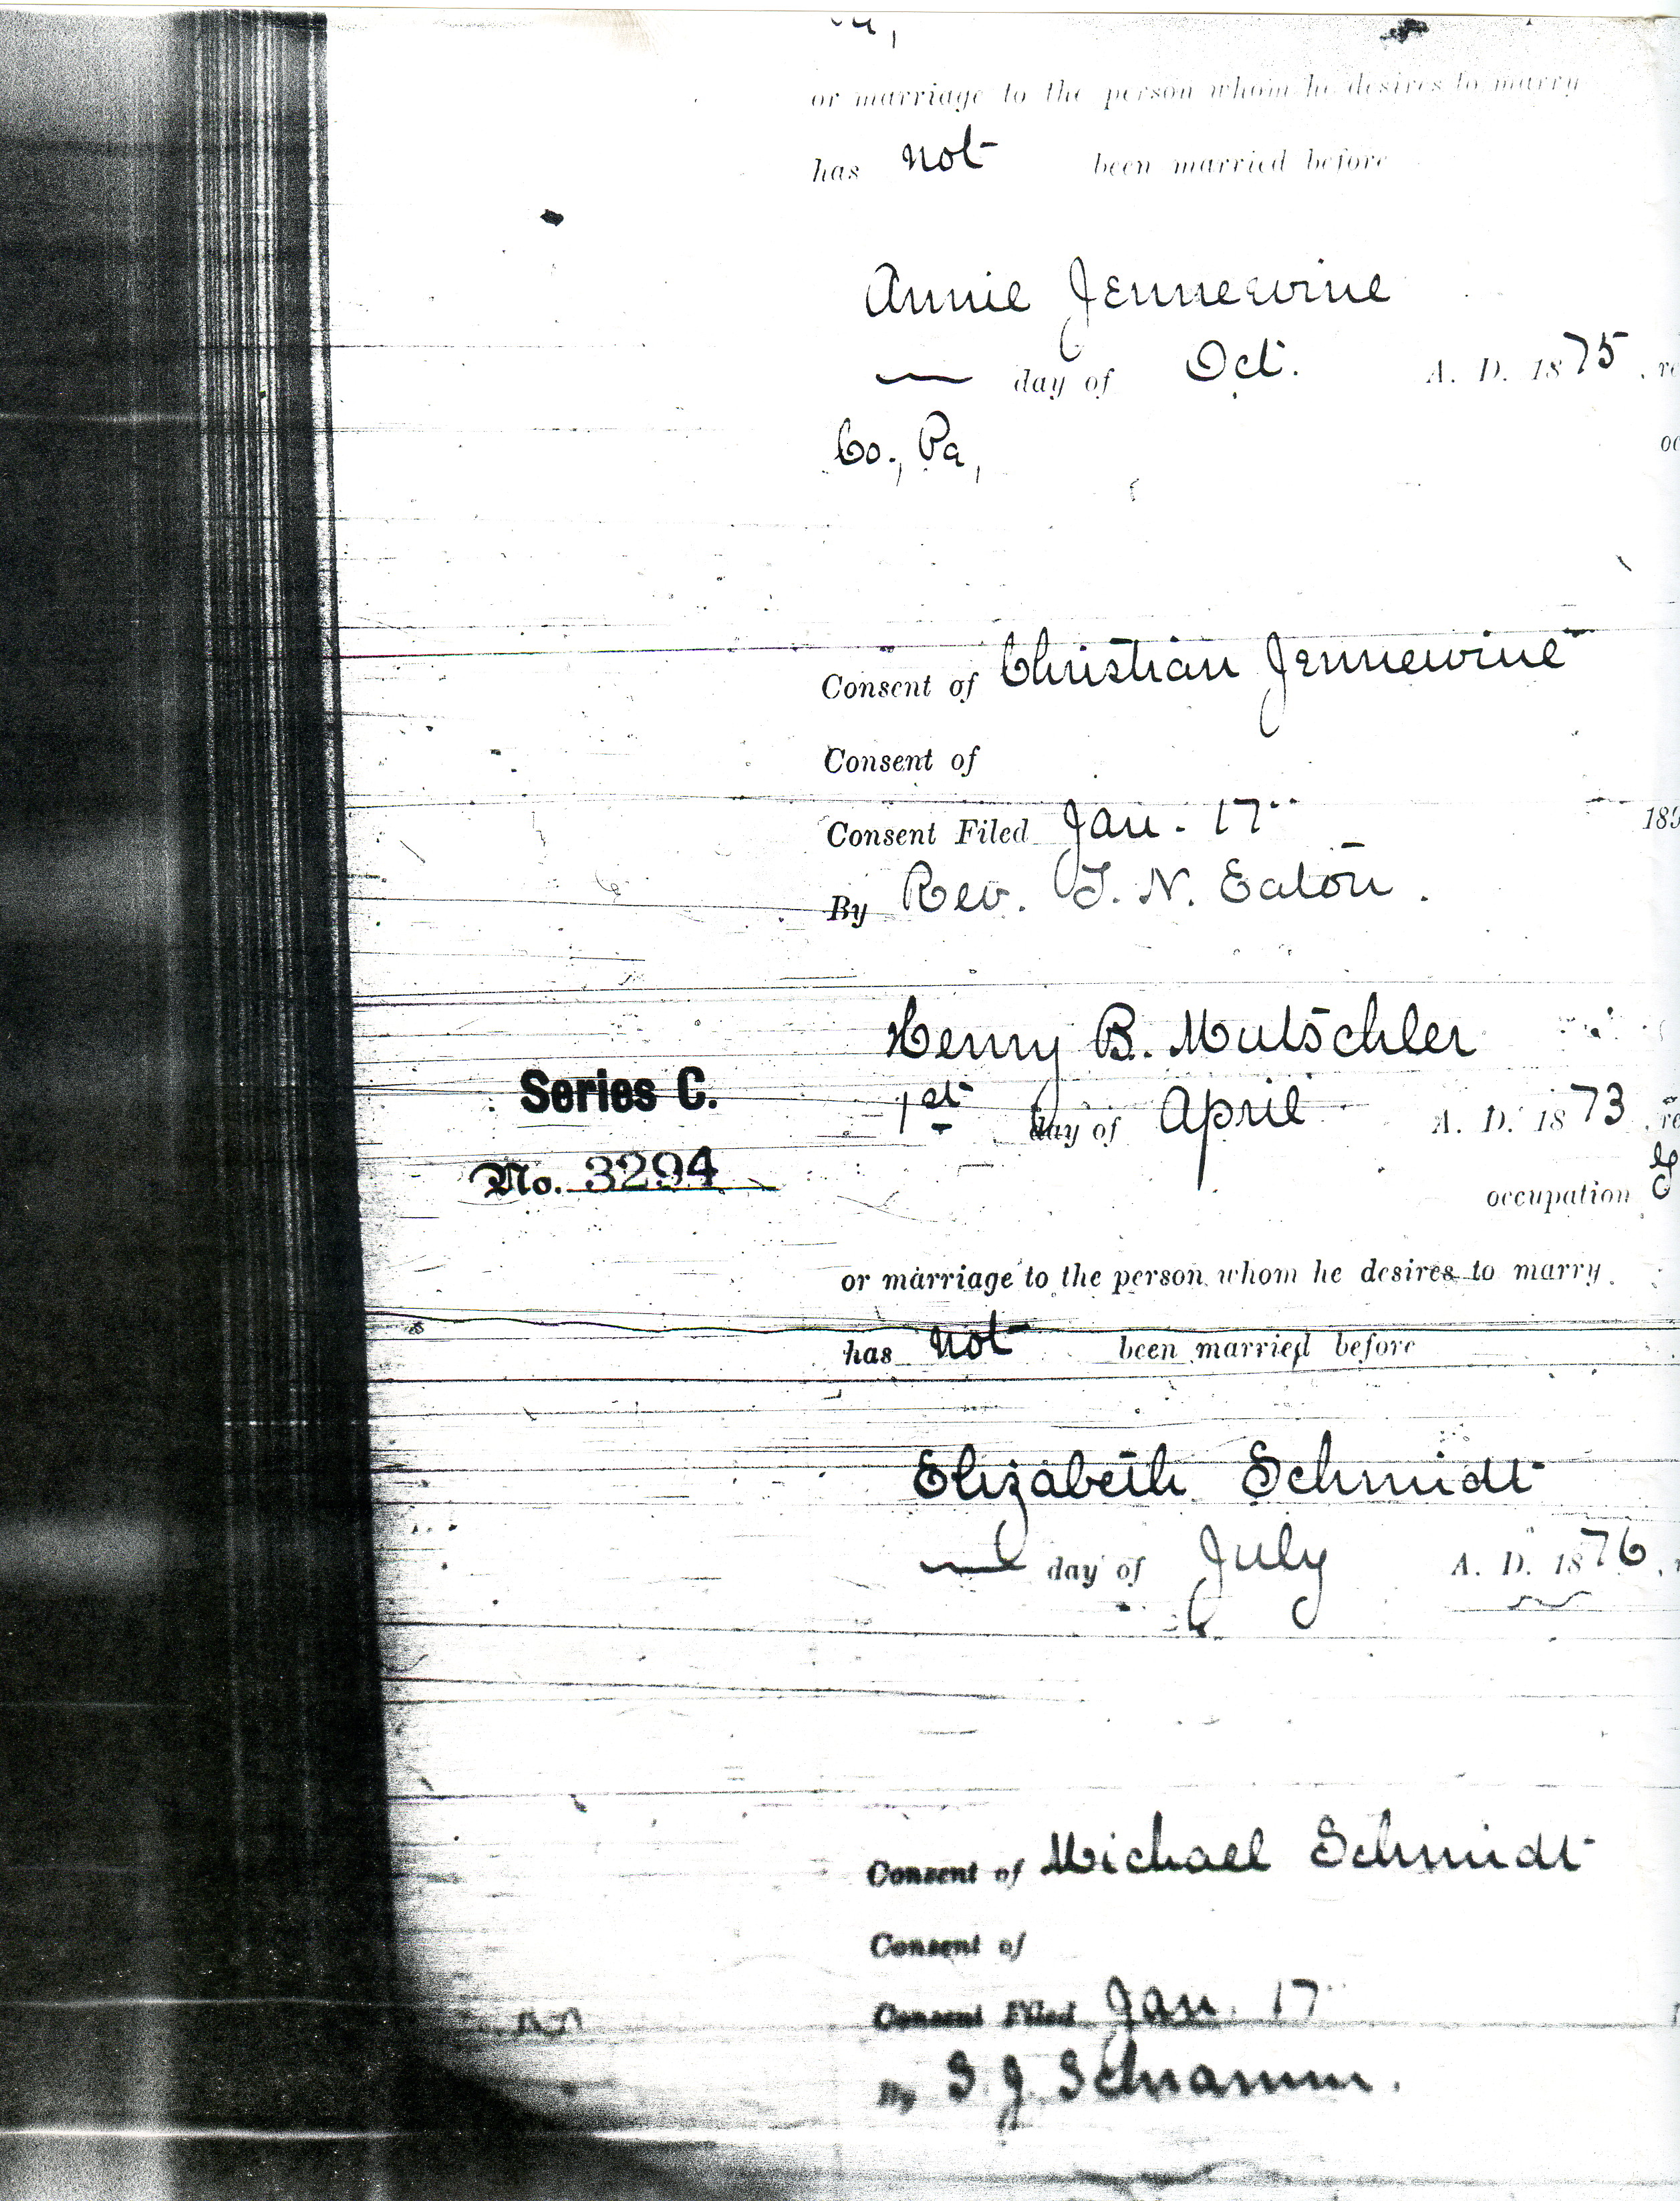 or marriage to the person whom he desires to marry
has not been married before
Annie Jennewine
day of Oct. A. D. 1875, re
Co., Pa,
oc
Consent of Christian Jennewine
Consent of
Consent Filed Jan. 17 189
By Rev. T. N. Eaton.
Henry B. Mutschler
Series C.
1st day of April A. D. 1873, re
No. 3294
occupation
or marriage to the person whom he desires to marry
has not been married before
Elizabeth Schmidt
day of July A. D. 1876,
Consent of Michael Schmidt
Consent of
Consent Filed Jan. 17
By S. J. Schramm.